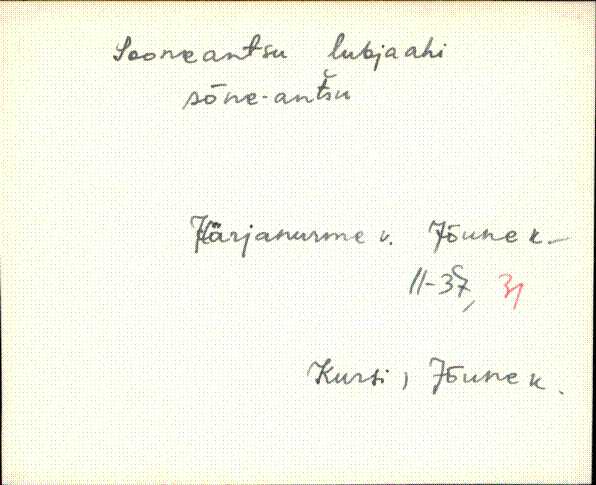 Sooneantsu lubjaahi
sōne-antšu
Härjanurme v. Jõune k.
11-37, 31
Kursi, Jõune k.